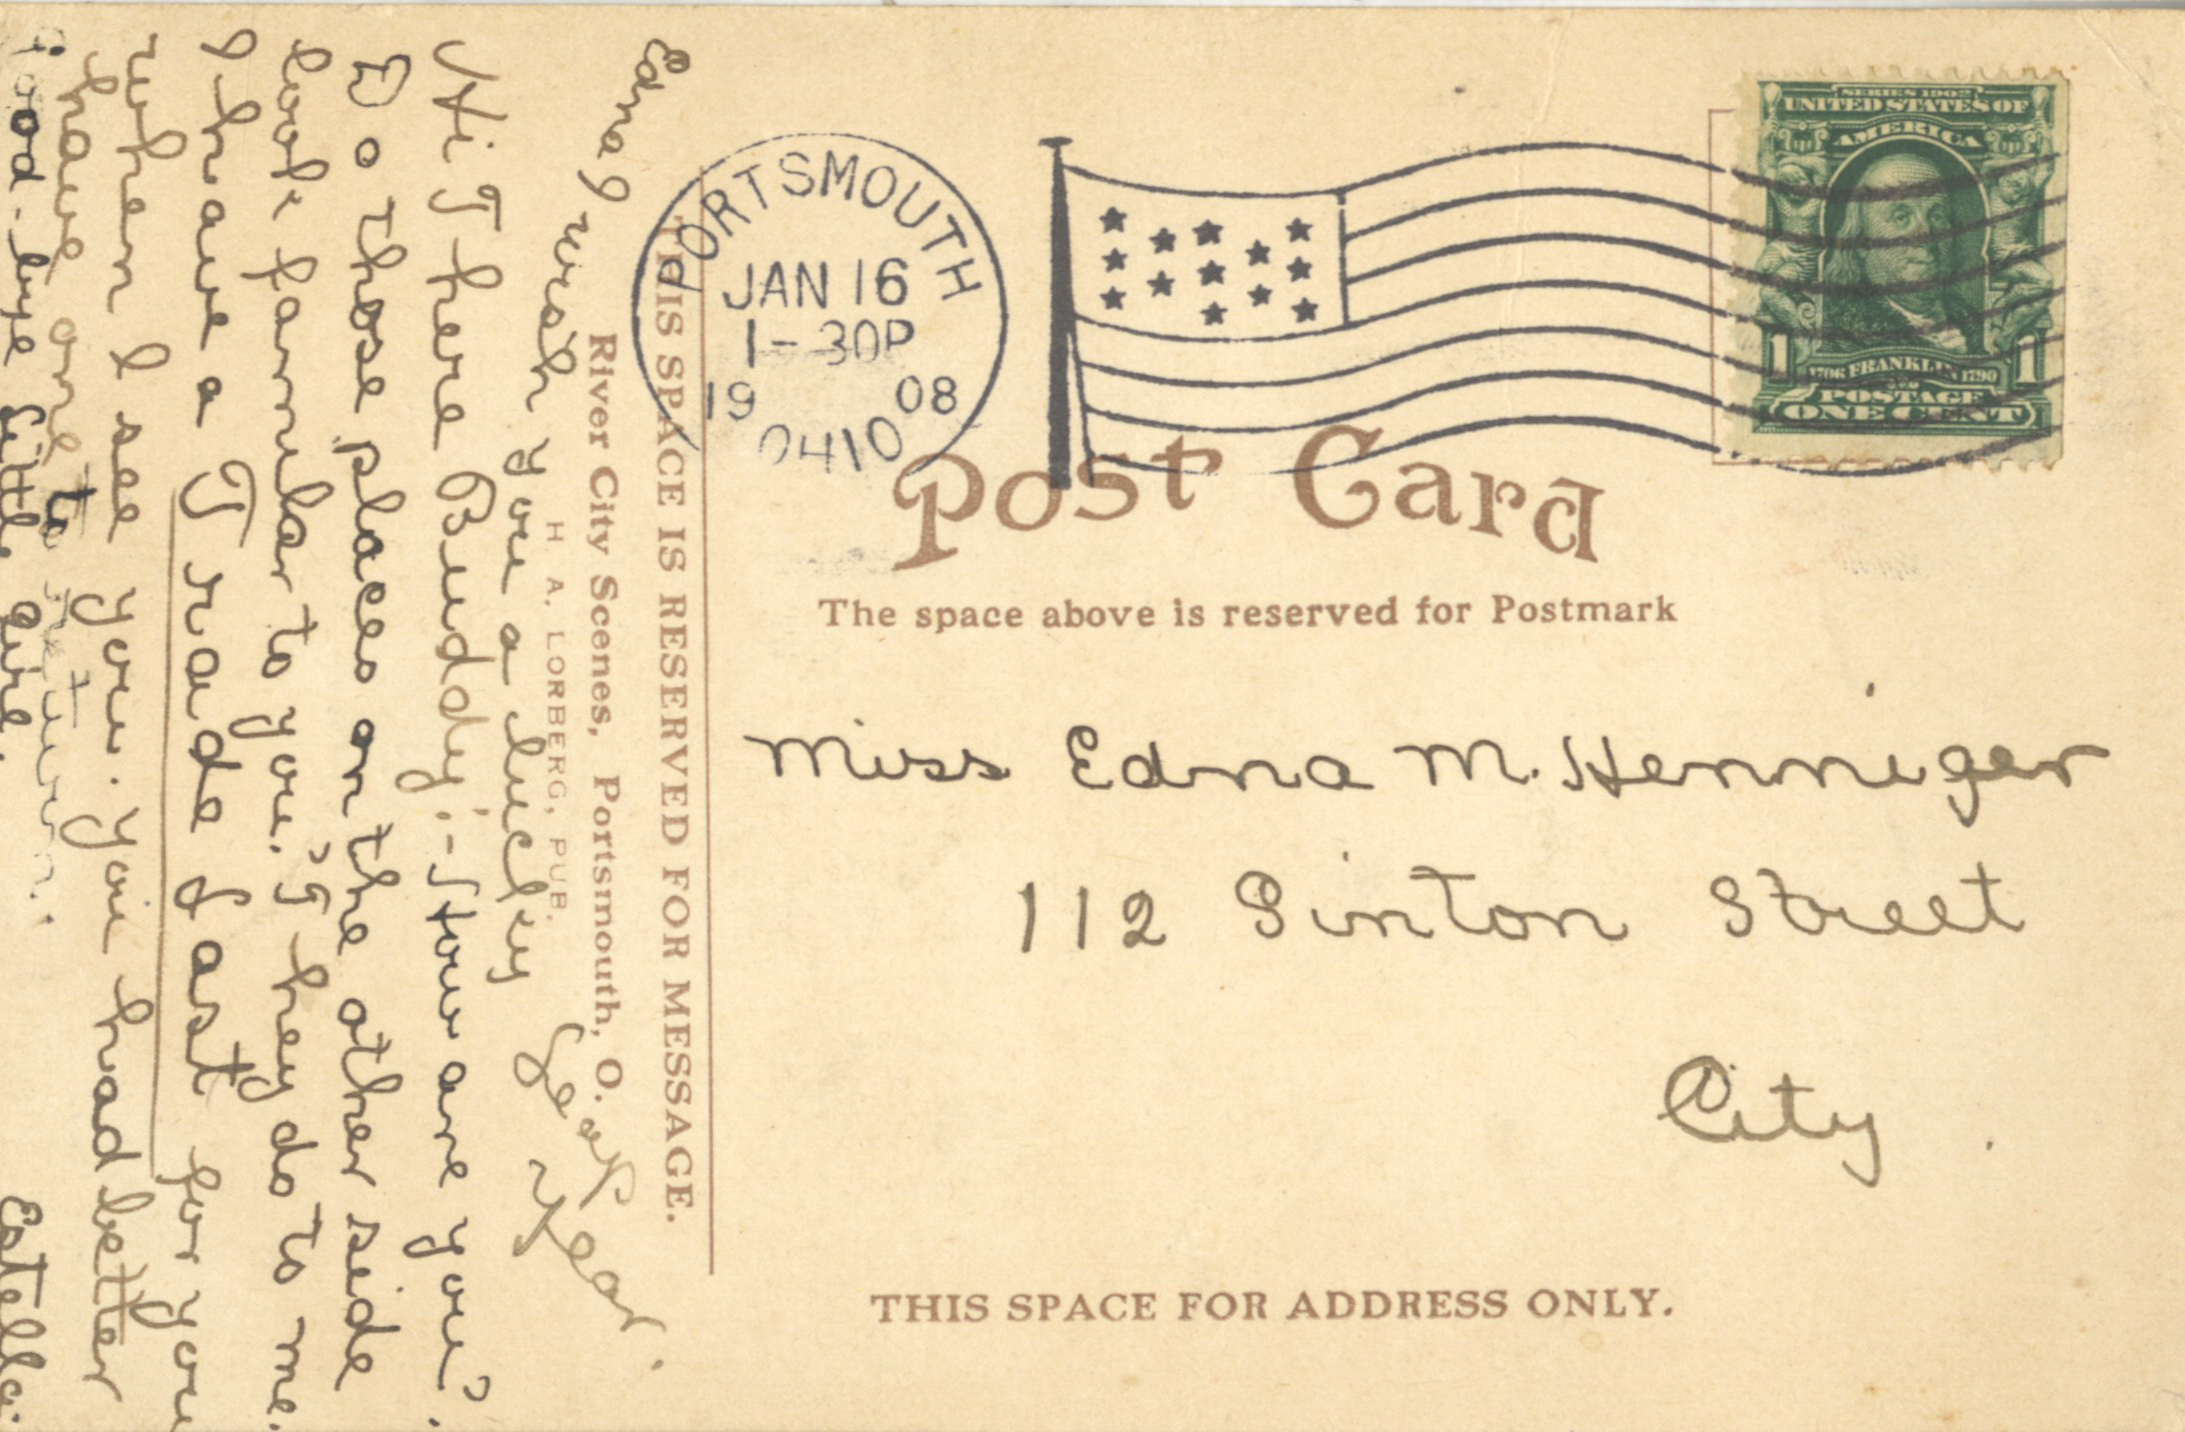 SERIES 1902
UNITED STATES OF
AMERICA
1 1
1706 FRANKLIN 1790
POSTAGE
ONE CENT
PORTSMOUTH
JAN 16
1-30P
19 08
OHIO
Post Card
The space above is reserved for Postmark
Miss Edna M. Henniger
112 Sinton Street
City
THIS SPACE FOR ADDRESS ONLY.
THIS SPACE IS RESERVED FOR MESSAGE.
River City Scenes, Portsmouth, O.
H. A. LORBERG, PUB.
Edna I wish you a lucky Leap Year.
Hi There Buddy:- How are you?
Do those places on the other side
look familar to you? They do to me.
I have a Trade Last for you
when I see you. you had better
have one to return.
Good-bye Little Girl.
Estella.